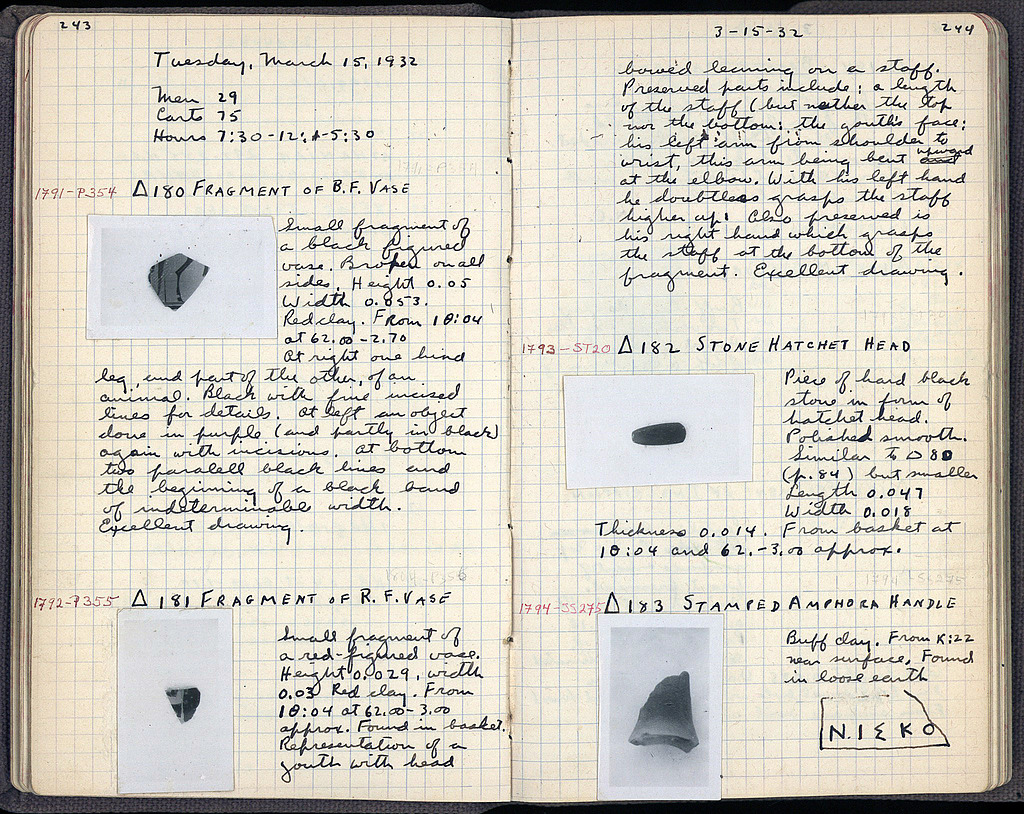 243
Tuesday, March 15, 1932
Men 29
Carts 75
Hours 7:30-12; 1-5:30
1791-P354 Δ180 FRAGMENT OF B.F. VASE
Small fragment of
a black figured
vase. Broken on all
sides. Height 0.05
Width 0.053.
Red clay. From 10:04
at 62.00-2.70
At right one hind
leg, and part of the other, of an
animal. Black with fine incised
lines for details. At left an object
done in purple (and partly in black)
again with incisions. At bottom
two paralell black lines and
the beginning of a black band
of indeterminable width.
Excellent drawing.
1792-P355 Δ181 FRAGMENT OF R.F. VASE
Small fragment of
a red-figured vase.
Height 0.029, width
0.03 Red clay. From
10:04 at 62.00-3.00
approx. Found in basket.
Representation of a
youth with head
3-15-32
244
bowed leaning on a staff.
Preserved parts include: a length
of the staff (but neither the top
nor the bottom; the youth's face;
his left arm from shoulder to
wrist, this arm being bent upward
at the elbow. With his left hand
he doubtless grasps the staff
higher up! Also preserved is
his right hand which grasps
the staff at the bottom of the
fragment. Excellent drawing.
1793-ST20 Δ182 STONE HATCHET HEAD
Piece of hard black
stone in form of
hatchet head.
Polished smooth.
Similar to Δ80
(p.84) but smaller
Length 0.047
Width 0.018
Thickness 0.014. From basket at
10:04 and 62.-3.00 approx.
1794-SS275 Δ183 STAMPED AMPHORA HANDLE
Buff clay. From K:22
near surface. Found
in loose earth
N.IΣKO